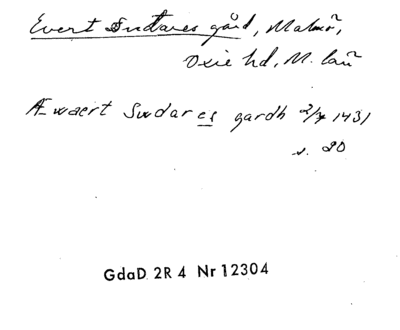 Evert Sudares gård, Malmö,
Oxie hd, M. län
Æwaert Swdares gardh 2/7 1431
s. 20
GdaD 2R 4 Nr 12304